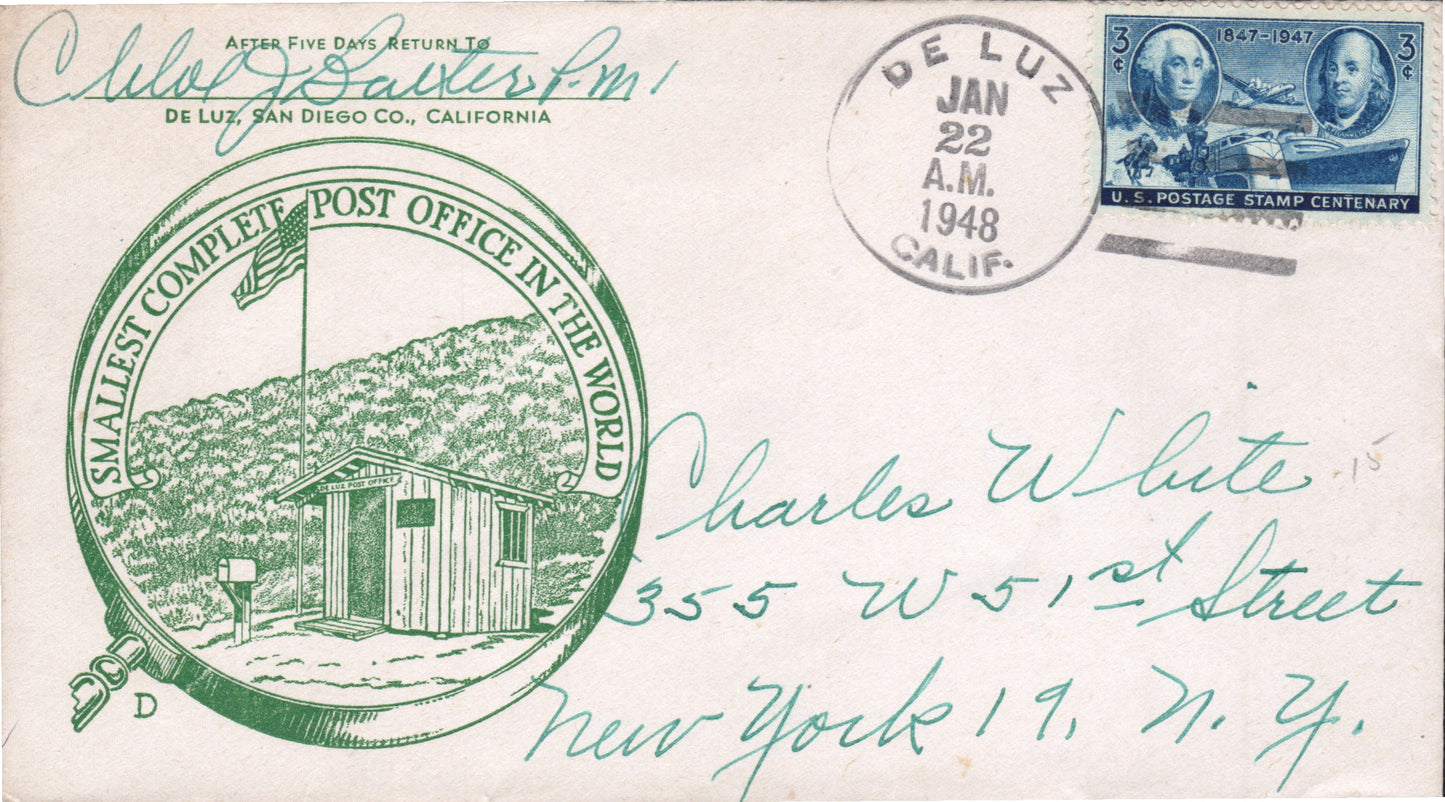 AFTER FIVE DAYS RETURN TO
Chloe J. Baxter, P.M.
DE LUZ, SAN DIEGO CO., CALIFORNIA
SMALLEST COMPLETE POST OFFICE IN THE WORLD
DE LUZ POST OFFICE
D
DE LUZ
JAN
22
A.M.
1948
CALIF.
3¢ 1847-1947 3¢
U.S. POSTAGE STAMP CENTENARY
Charles White
15
355 W 51st Street
New York 19, N. Y.